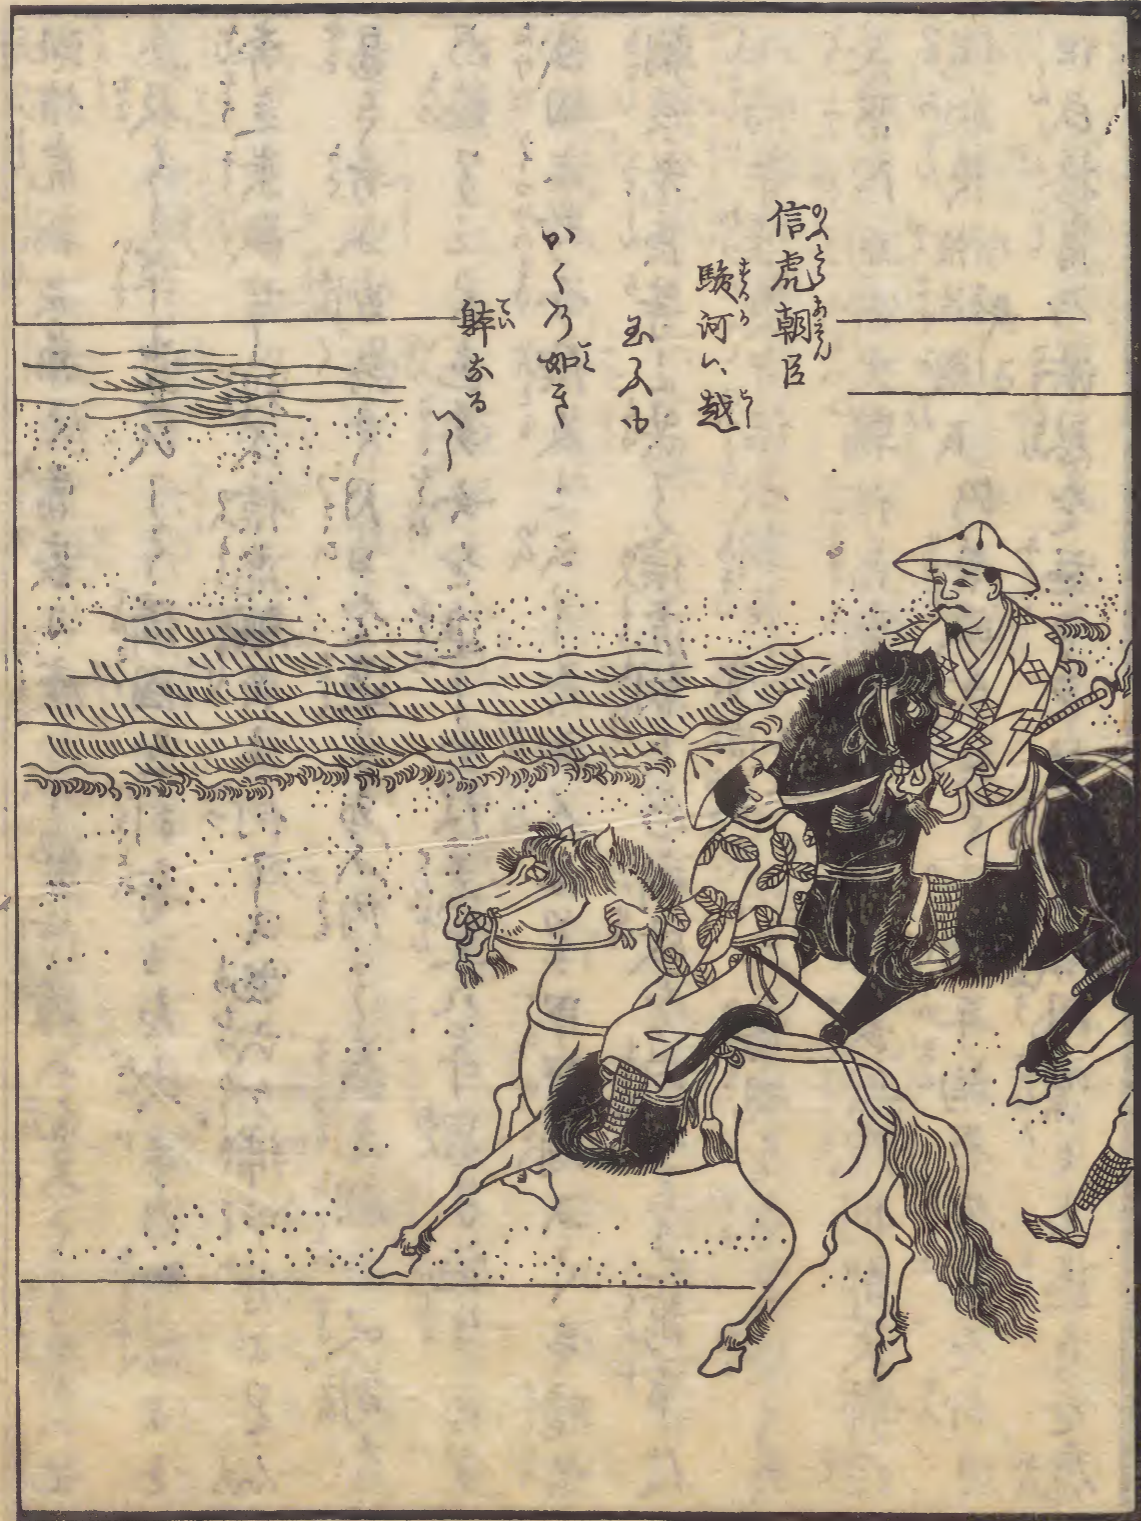 信虎朝臣
駿河へ越
玉ふ中
かくの如き
躰なる
べし